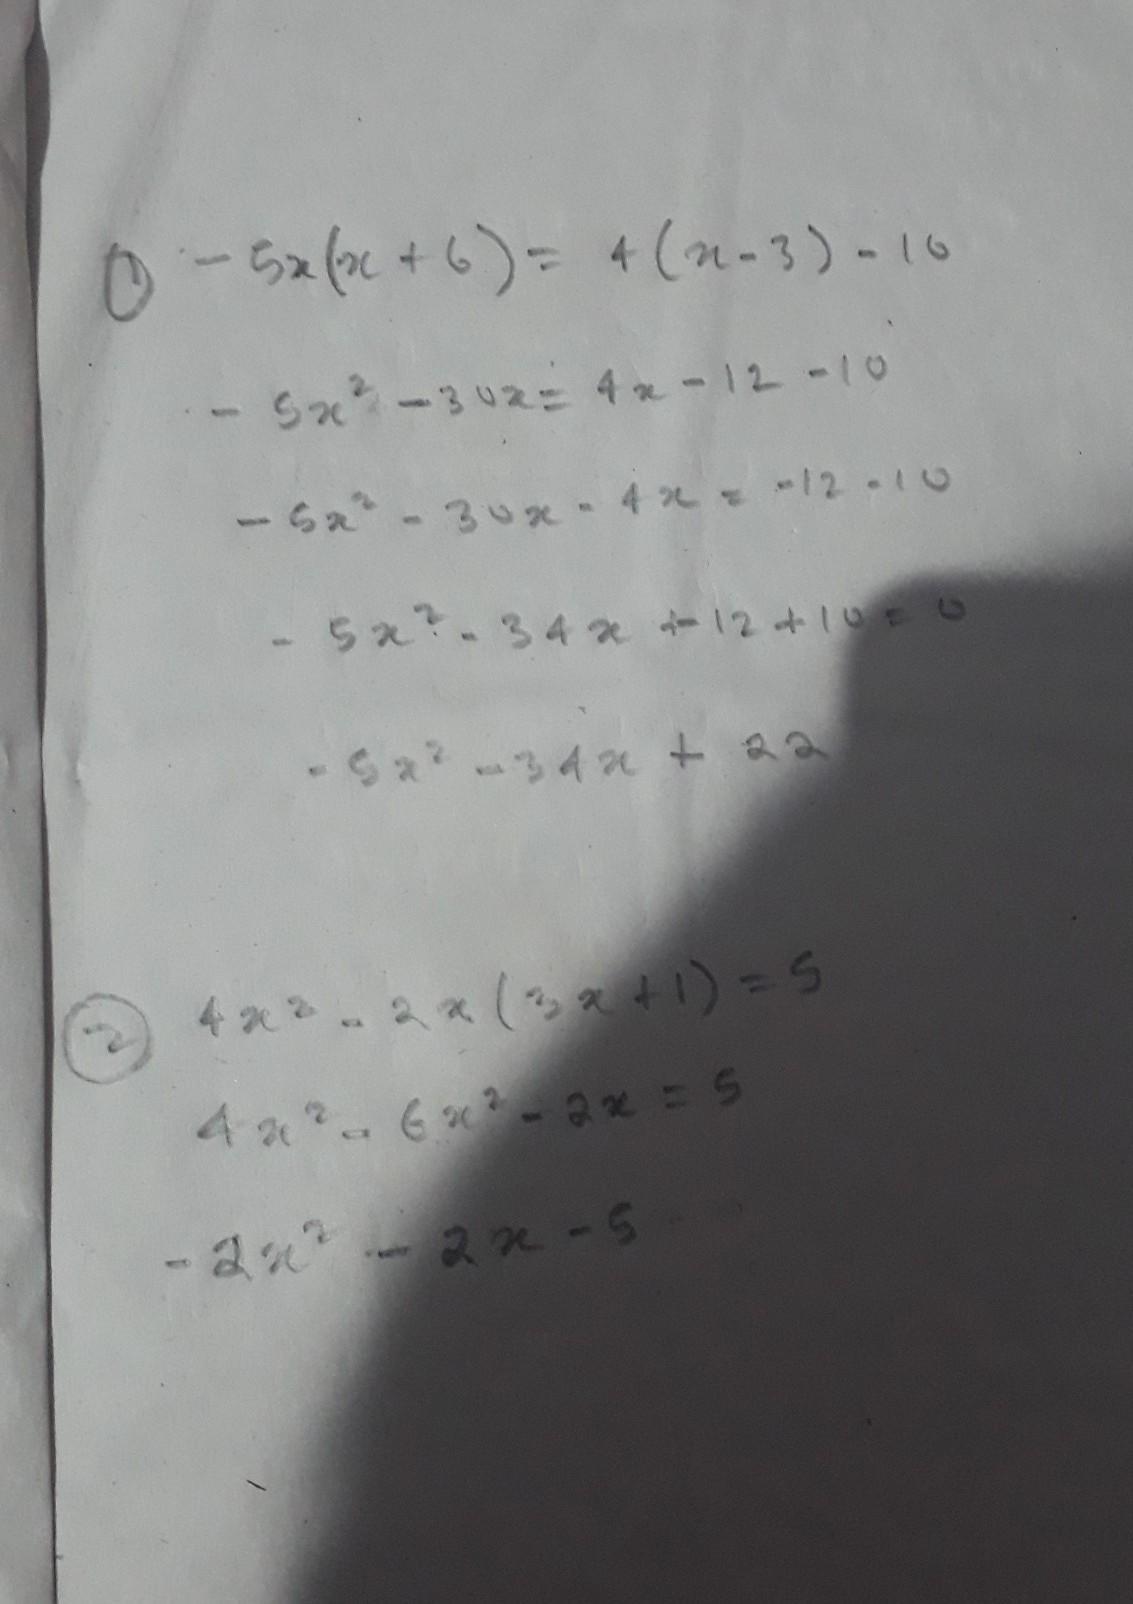 ① - 5x(x + 6) = 4(x - 3) - 10
- 5x² - 30x = 4x - 12 - 10
- 5x² - 30x - 4x = -12 - 10
- 5x² - 34x + 12 + 10 = 0
- 5x² - 34x + 22
② 4x² - 2x(3x + 1) = 5
4x² - 6x² - 2x = 5
- 2x² - 2x - 5